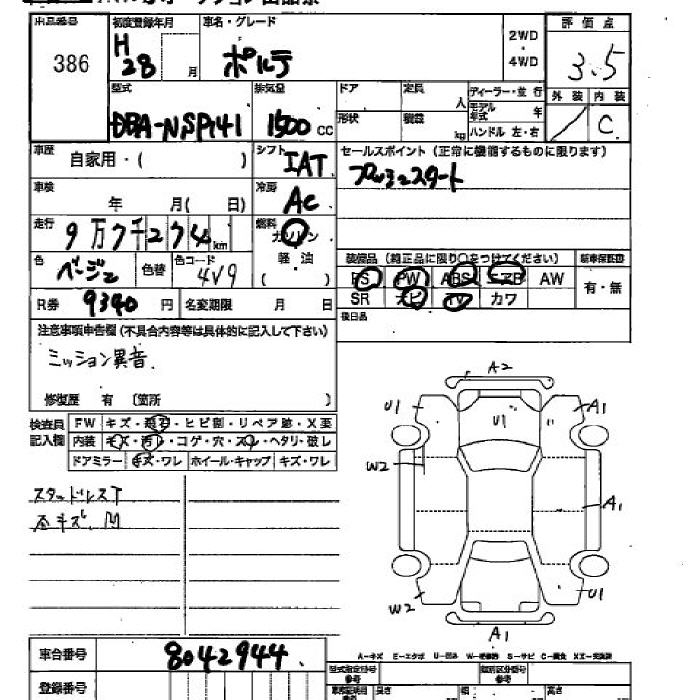 出品番号 初度登録年月 車名・グレード 2WD 評価点
386 H 28 月 ポルテ ・ 4WD 3.5
外装 内装
型式 排気量 ドア 定員 人 ディーラー・並行 / C
DBA-NSP141 1500 cc 形状 積載 kg モデル年式 年
ハンドル 左・右
車歴 自家用・( ) シフト IAT セールスポイント (正常に機能するものに限ります)
車検 年 月( 日) 冷房 AC プッシュスタート
走行 9万7千274km 燃料 ガソリン
色 ベージュ 色替 色コード 4V9 軽油 ( ) 装備品 (純正品に限り○をつけてください) 新車保証書
PS PW ABS エアB AW 有・無
R券 9340 円 名変期限 月 日 SR ナビ TV カワ
後日品
注意事項申告欄 (不具合内容等は具体的に記入して下さい)
ミッション異音
修復歴 有 〔箇所 〕
検査員記入欄 FW キズ・飛石・ヒビ割・リペア跡・X要
内装 キズ・汚レ・コゲ・穴・スレ・ヘタリ・破レ
ドアミラー キズ・ワレ ホイール・キャップ キズ・ワレ
スタッドレスT
石キズ、凹
A2
U1 U1 A1
W2
A1
W2 U1
A1
A-キズ E-エクボ U-凹み W-補修跡 S-サビ C-腐食 XX-交換済
車台番号 8042944
型式指定番号 参考 類別区分番号 参考
登録番号 長さ 幅 高さ